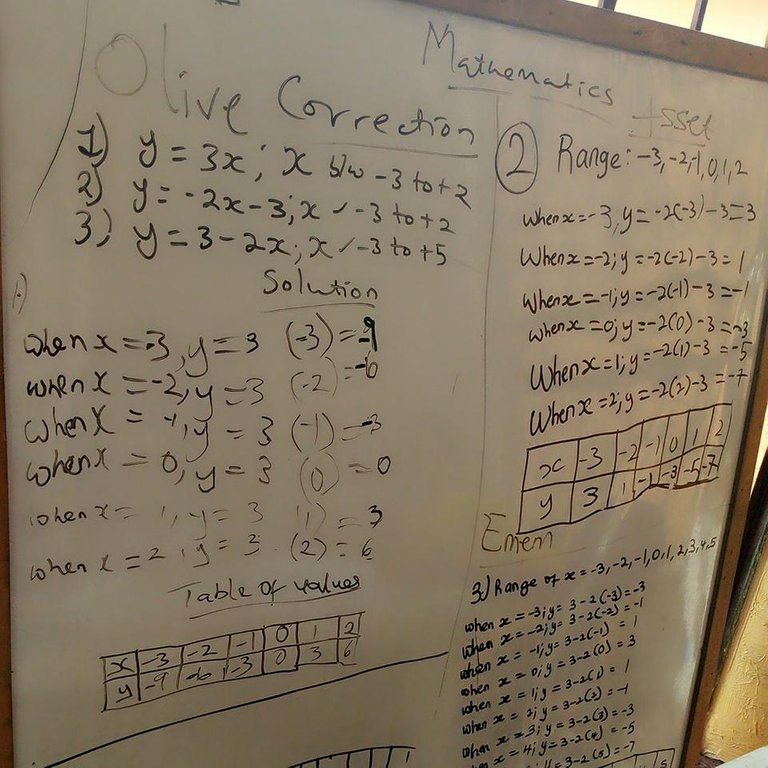 Mathematics
Olive Correction
1) y = 3x; x b/w -3 to +2
2) y = -2x-3; x ✓ -3 to +2
3) y = 3-2x; x ✓ -3 to +5
Solution
1.)
when x = -3, y = 3 (-3) = -9
when x = -2, y = 3 (-2) = -6
when x = -1, y = 3 (-1) = -3
when x = 0, y = 3 (0) = 0
when x = 1, y = 3 (1) = 3
when x = 2, y = 3 (2) = 6
Table of values
x -3 -2 -1 0 1 2
y -9 -6 -3 0 3 6
Asset
2 Range: -3, -2, -1, 0, 1, 2
when x = -3, y = -2(-3) - 3 = 3
When x = -2; y = -2(-2) - 3 = 1
When x = -1; y = -2(-1) - 3 = -1
when x = 0; y = -2(0) - 3 = -3
When x = 1; y = -2(1) - 3 = -5
When x = 2; y = -2(2) - 3 = -7
x -3 -2 -1 0 1 2
y 3 1 -1 -3 -5 -7
Emem
3.) Range of x = -3, -2, -1, 0, 1, 2, 3, 4, 5
when x = -3; y = 3-2(-3) = -3
when x = -2; y = 3-2(-2) = -1
when x = -1; y = 3-2(-1) = 1
when x = 0; y = 3-2(0) = 3
when x = 1; y = 3-2(1) = 1
when x = 2; y = 3-2(2) = -1
when x = 3; y = 3-2(3) = -3
when x = 4; y = 3-2(4) = -5
y = 3-2(5) = -7